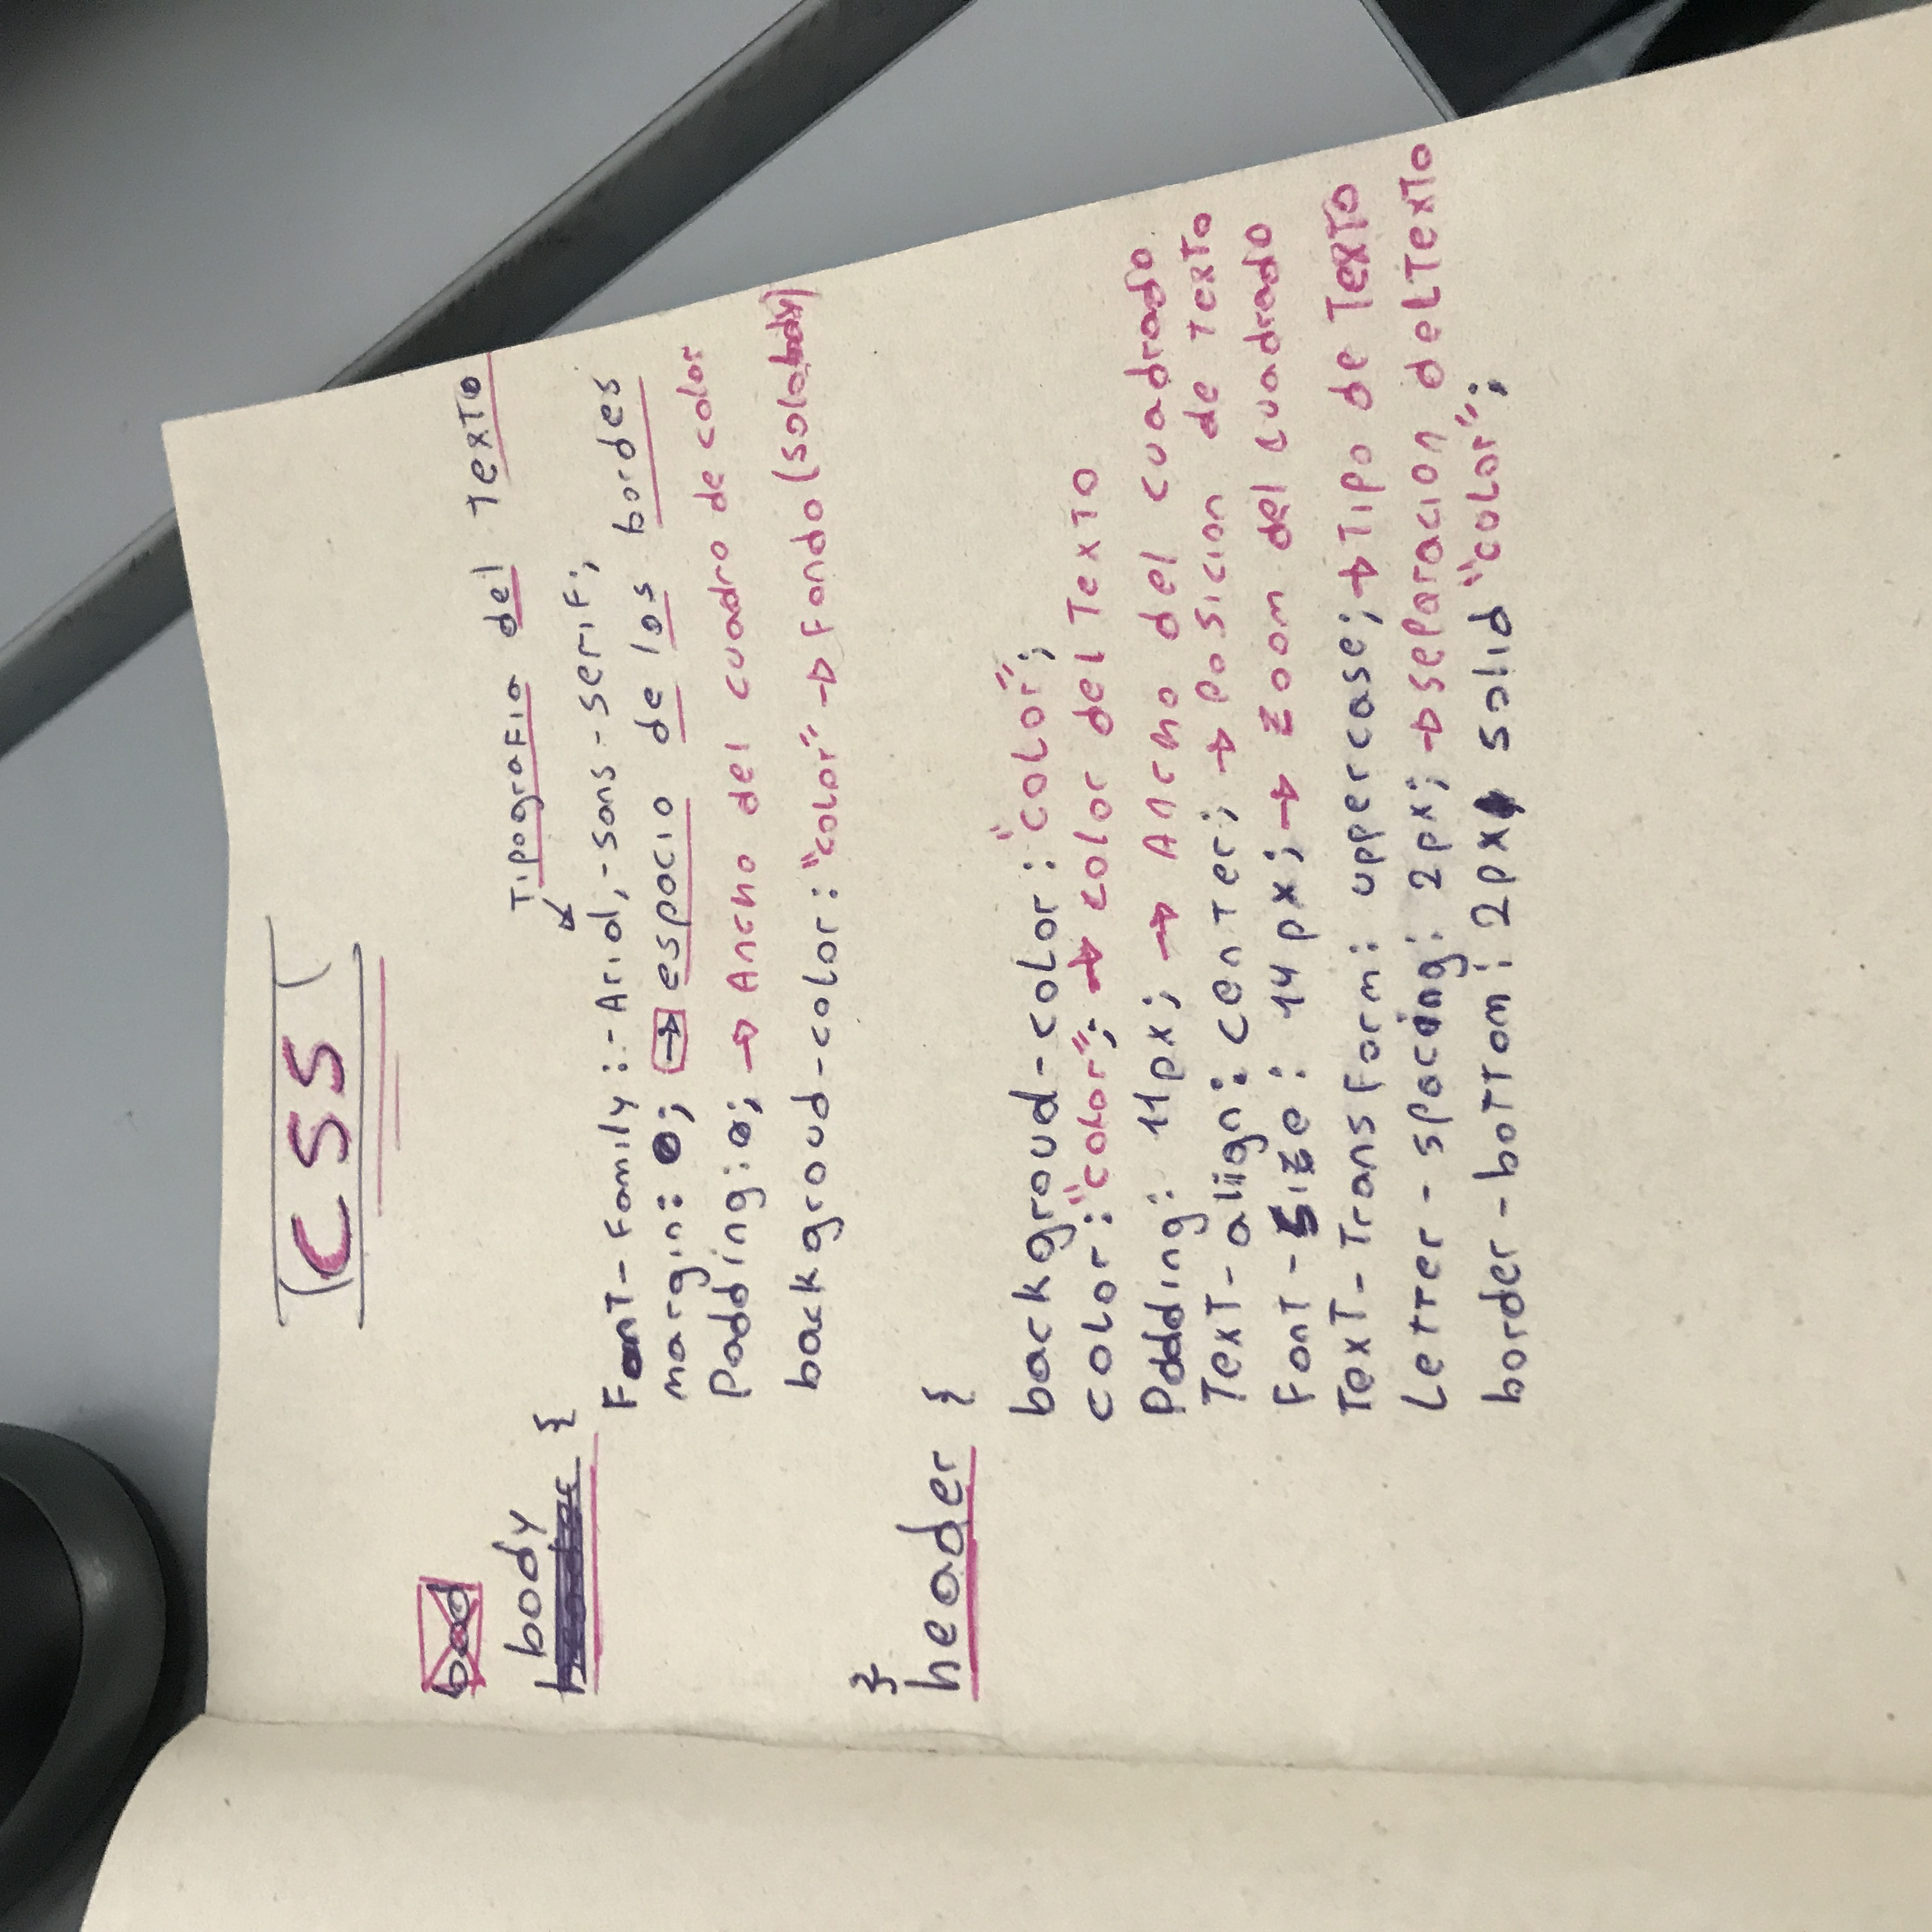 CSS
bod
Tipografia del Texto
body {
Font-Family:-Arial,-sans-serif;
margin: 0; → espacio de los bordes
Padding: 0; → Ancho del cuadro de color
backgroud-color: "color" → Fondo (solo body)
}
header {
backgroud-color: "color";
color: "color"; → color del Texto
Padding: 11px; → Ancho del cuadrado
Text-aliign: center; → posicion de texto
Font-Size: 14px; → zoom del cuadrado
Text-TransForm: uppercase; → Tipo de Texto
Letter-spacing: 2px; → separacion del Texto
border-boTTom: 2px solid "color";